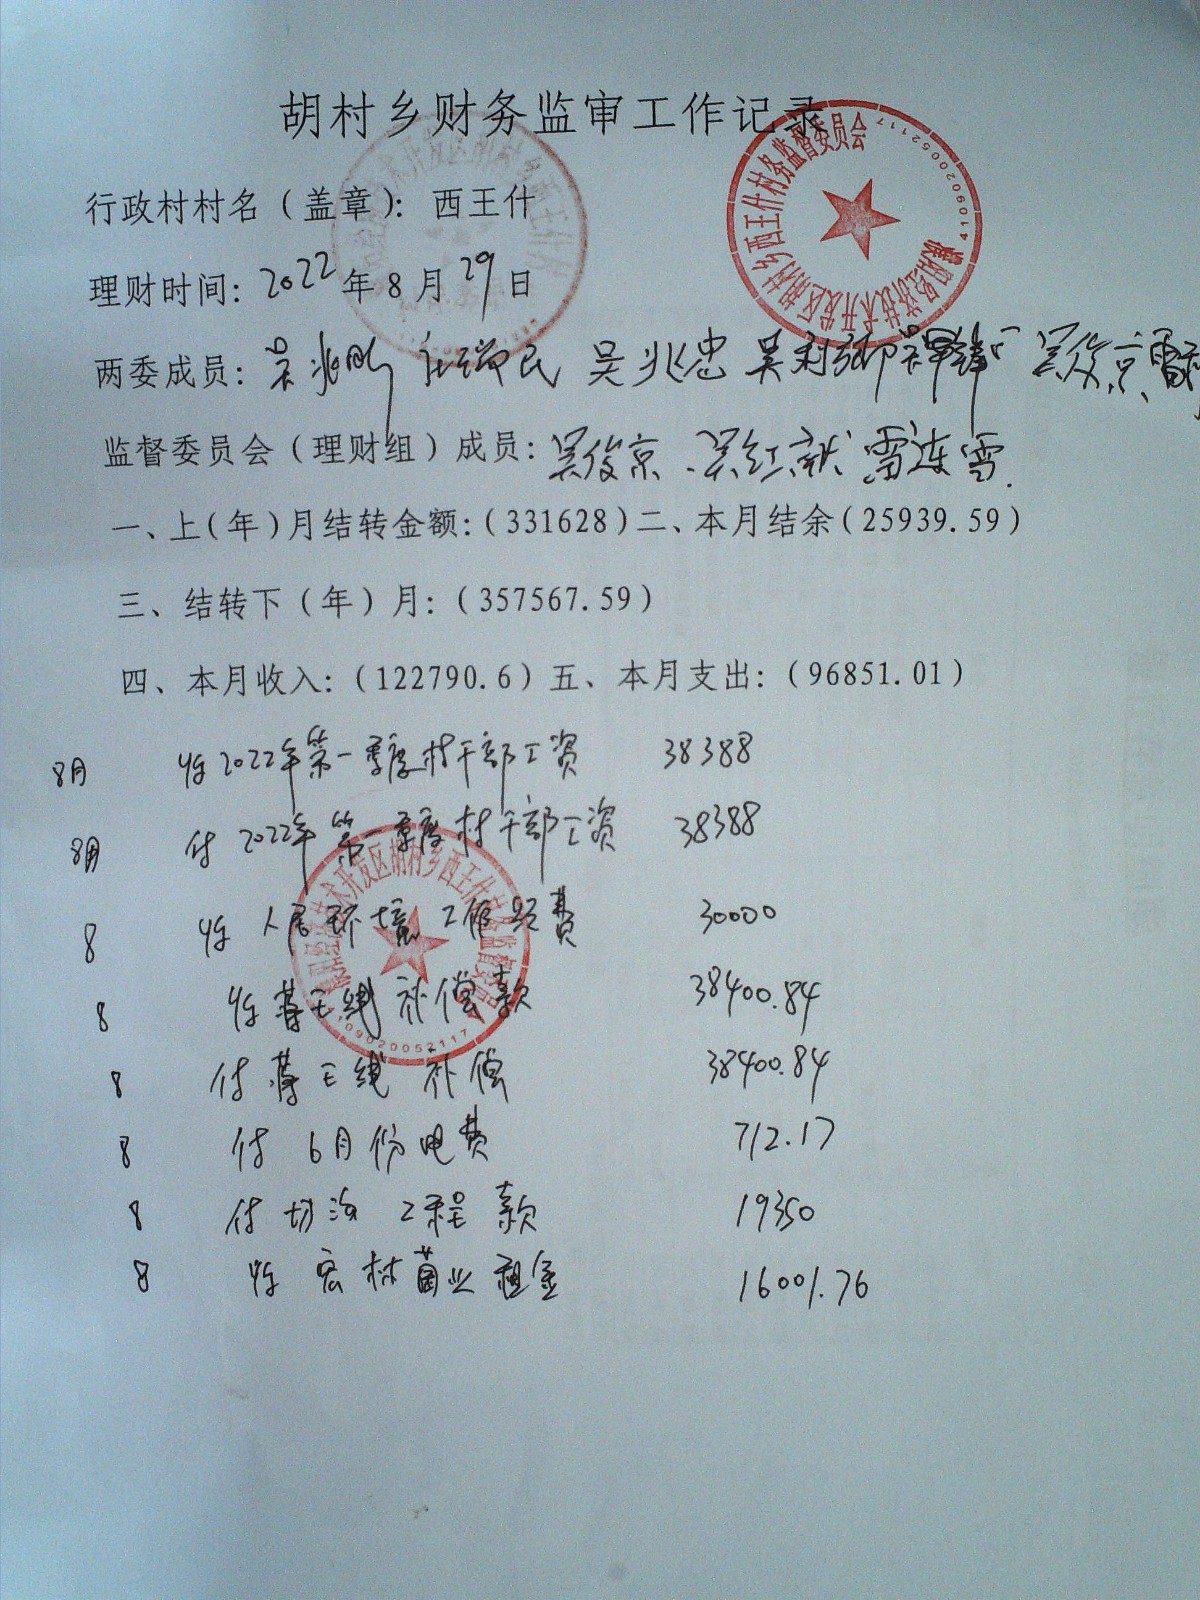 胡村乡财务监审工作记录
行政村村名(盖章): 西王什
理财时间: 2022年8月29日
两委成员: 吴兆 民 吴兆忠 吴利 吴俊京 雷
监督委员会(理财组)成员: 吴俊京、吴红 雷连雪
一、上(年)月结转金额:(331628)二、本月结余(25939.59)
三、结转下(年)月:(357567.59)
四、本月收入:(122790.6)五、本月支出:(96851.01)
8月 收2022年第一季度村干部工资 38388
8月 付2022年第一季度村干部工资 38388
8 收人居环境工作经费 30000
8 收 王线补偿款 38400.84
8 付 王线补偿 38400.84
8 付6月份电费 712.17
8 付 工程款 19350
8 收宏林菌业租金 16001.76
濮阳经济技术开发区胡村乡西王什村务监督委员会
4109020052117